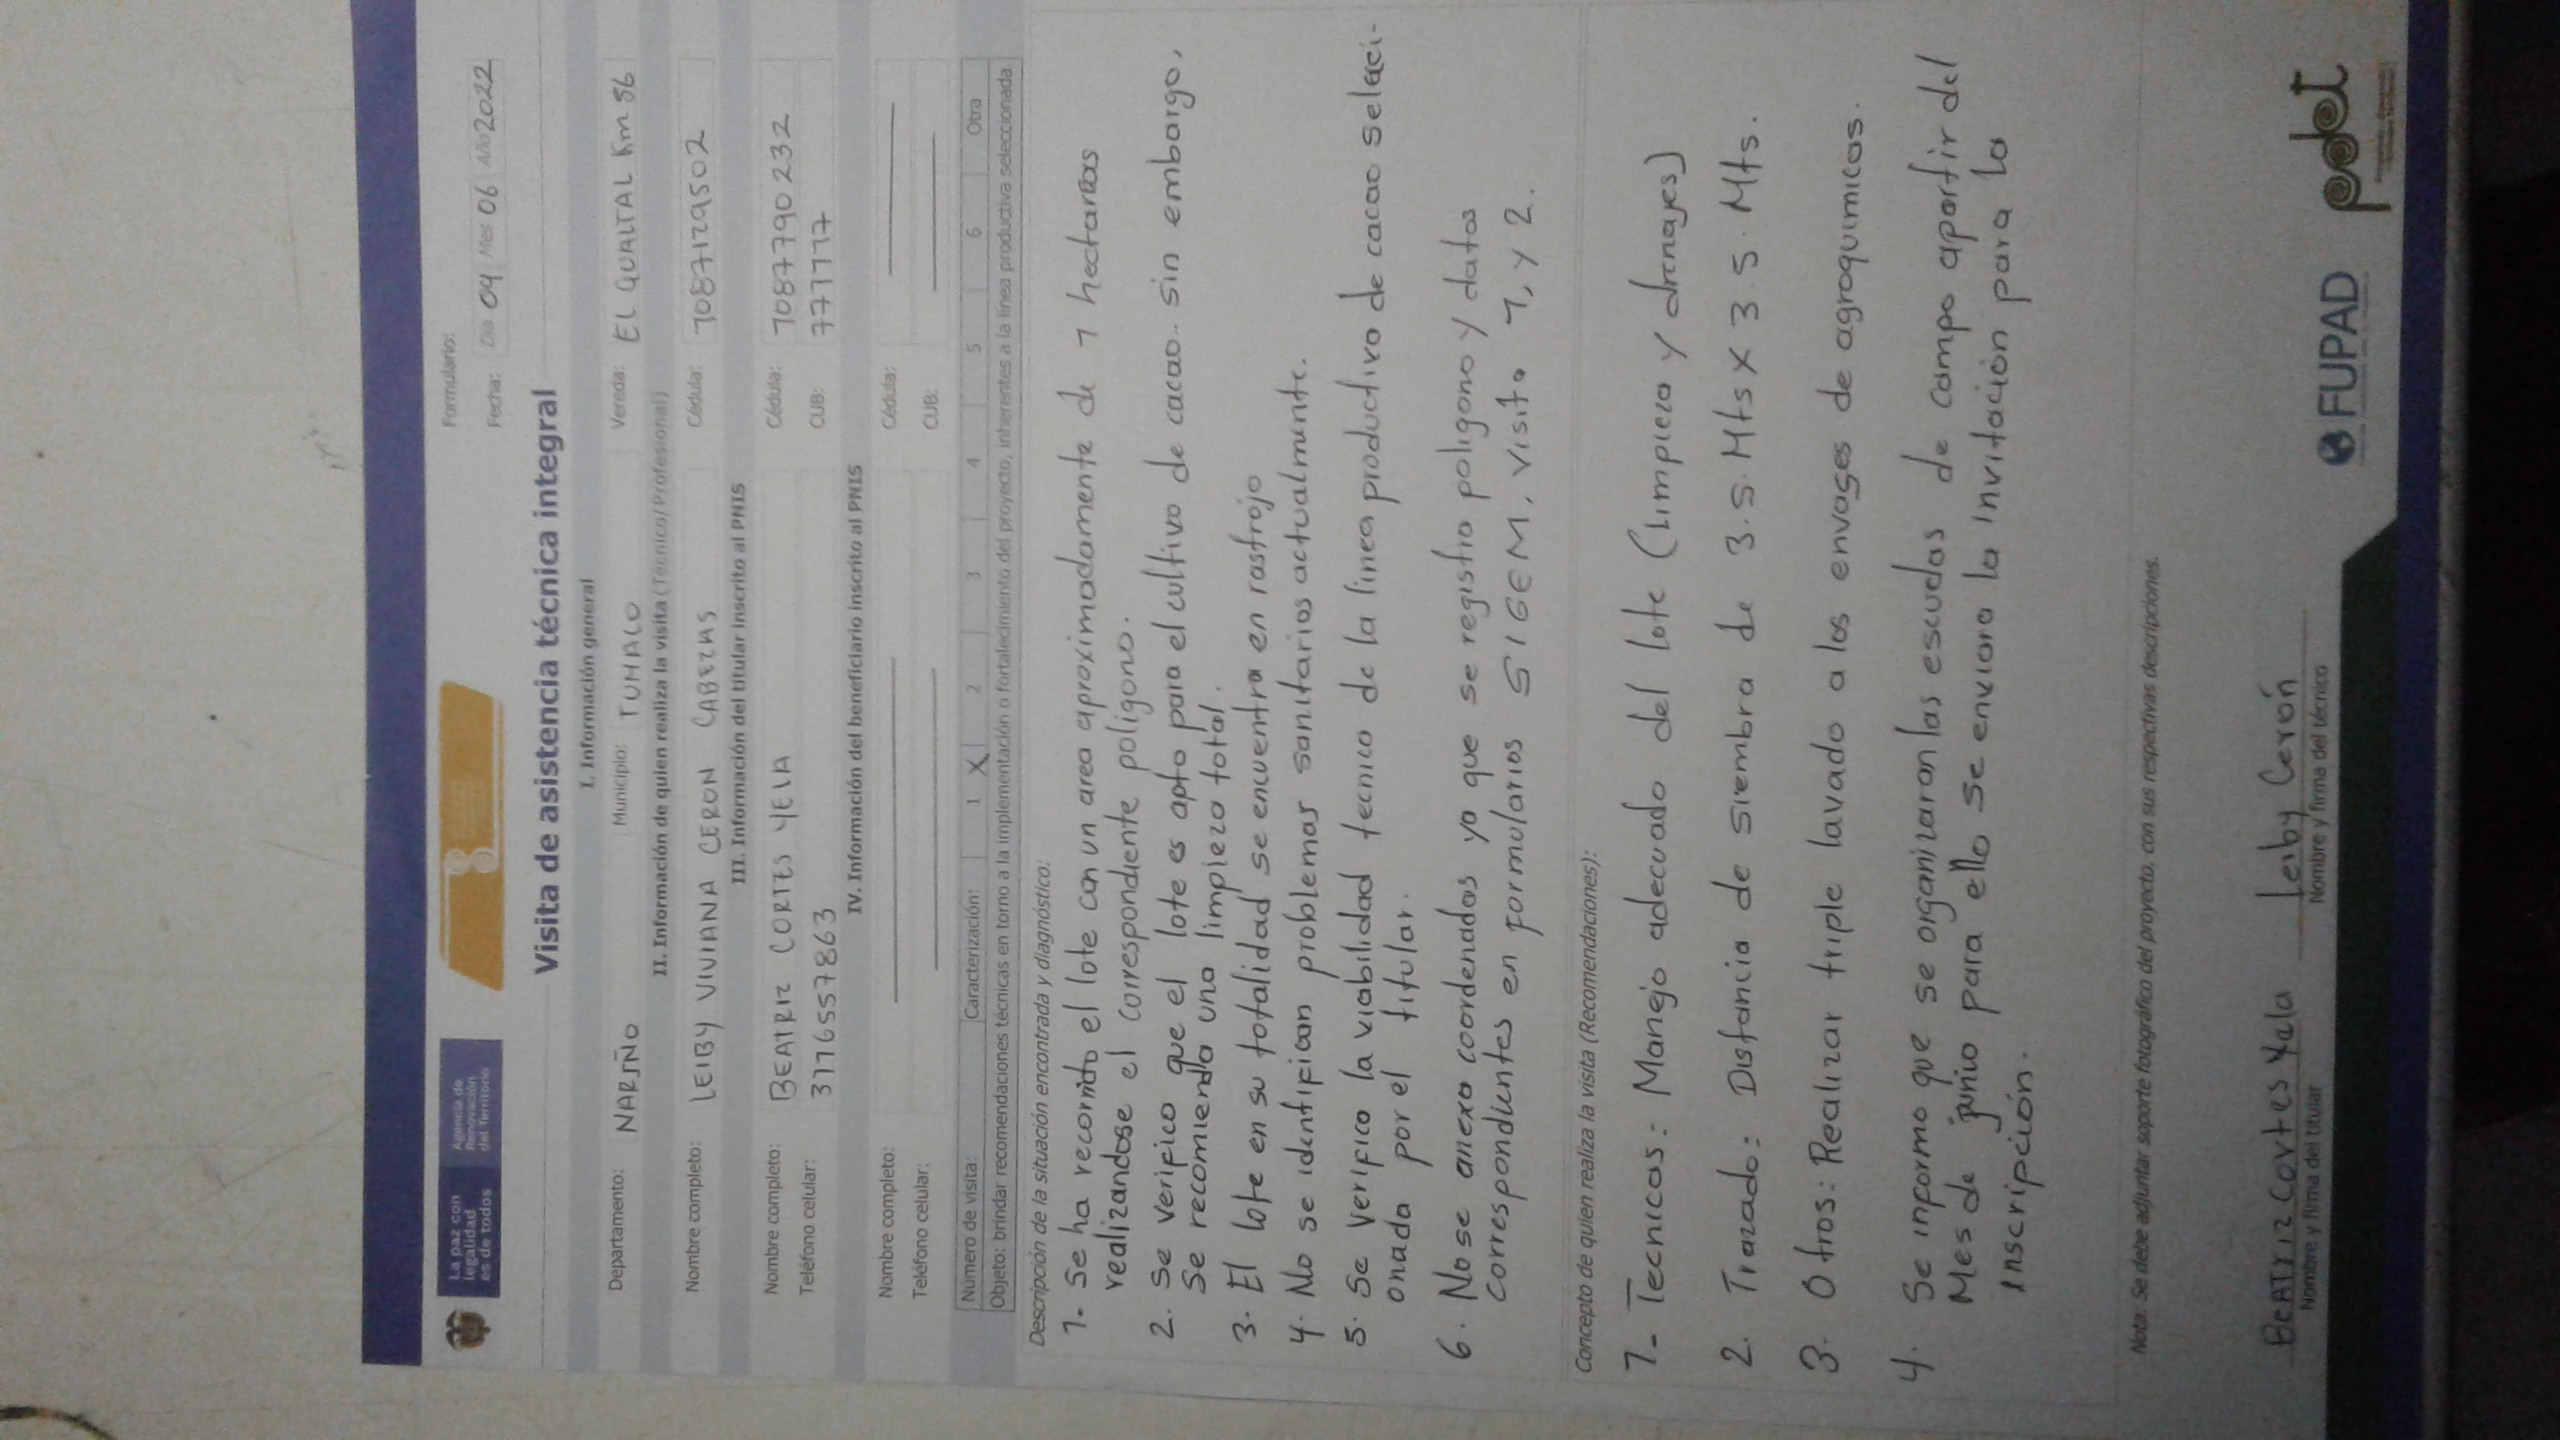 La paz con
legalidad
es de todos
Agencia de
Renovación
del Territorio
Formulario:
Fecha: Día 04 Mes 06 Año 2022
Visita de asistencia técnica integral
I. Información general
Departamento: NARIÑO Municipio: TUMACO Vereda: EL GUALTAL Km 56
II. Información de quien realiza la visita (Técnico/Profesional)
Nombre completo: LEIBY VIVIANA CERON CABEZAS Cédula: 1087129502
III. Información del titular inscrito al PNIS
Nombre completo: BEATRIZ CORTES YELA Cédula: 1087790232
Teléfono celular: 3176557863 CUB: 777777
IV. Información del beneficiario inscrito al PNIS
Nombre completo: Cédula:
Teléfono celular: CUB:
Número de visita: Caracterización: 1 X 2 3 4 5 6 Otra
Objeto: brindar recomendaciones técnicas en torno a la implementación o fortalecimiento del proyecto, inherentes a la línea productiva seleccionada.
Descripción de la situación encontrada y diagnóstico:
1- Se ha recorrido el lote con un area aproximadamente de 1 hectareas
realizandose el correspondiente poligono.
2. Se verifico que el lote es apto para el cultivo de cacao. sin embargo,
Se recomienda una limpieza total.
3. El lote en su totalidad se encuentra en rastrojo
4. No se identifican problemas sanitarios actualmente.
5. Se verifico la viabilidad tecnico de la linea productivo de cacao seleci-
onada por el titular.
6. No se anexa coordenadas ya que se registro poligono y datos
correspondientes en formularios SIGEM, visita 1, y 2.
Concepto de quien realiza la visita (Recomendaciones):
1- Tecnicos: Manejo adecuado del lote (Limpieza y drenajes)
2. Trazado: Distancia de siembra de 3.5. Mts x 3.5. Mts.
3. Otros: Realizar triple lavado a los envases de agroquimicos.
4. Se informo que se organizaran las escuelas de campo apartir del
Mes de junio para ello se enviara la invitación para la
inscripción.
Nota: Se debe adjuntar soporte fotográfico del proyecto, con sus respectivas descripciones.
BeATriz Cortes Yela Leiby Cerón
Nombre y firma del titular Nombre y firma del técnico
FUPAD
pdet